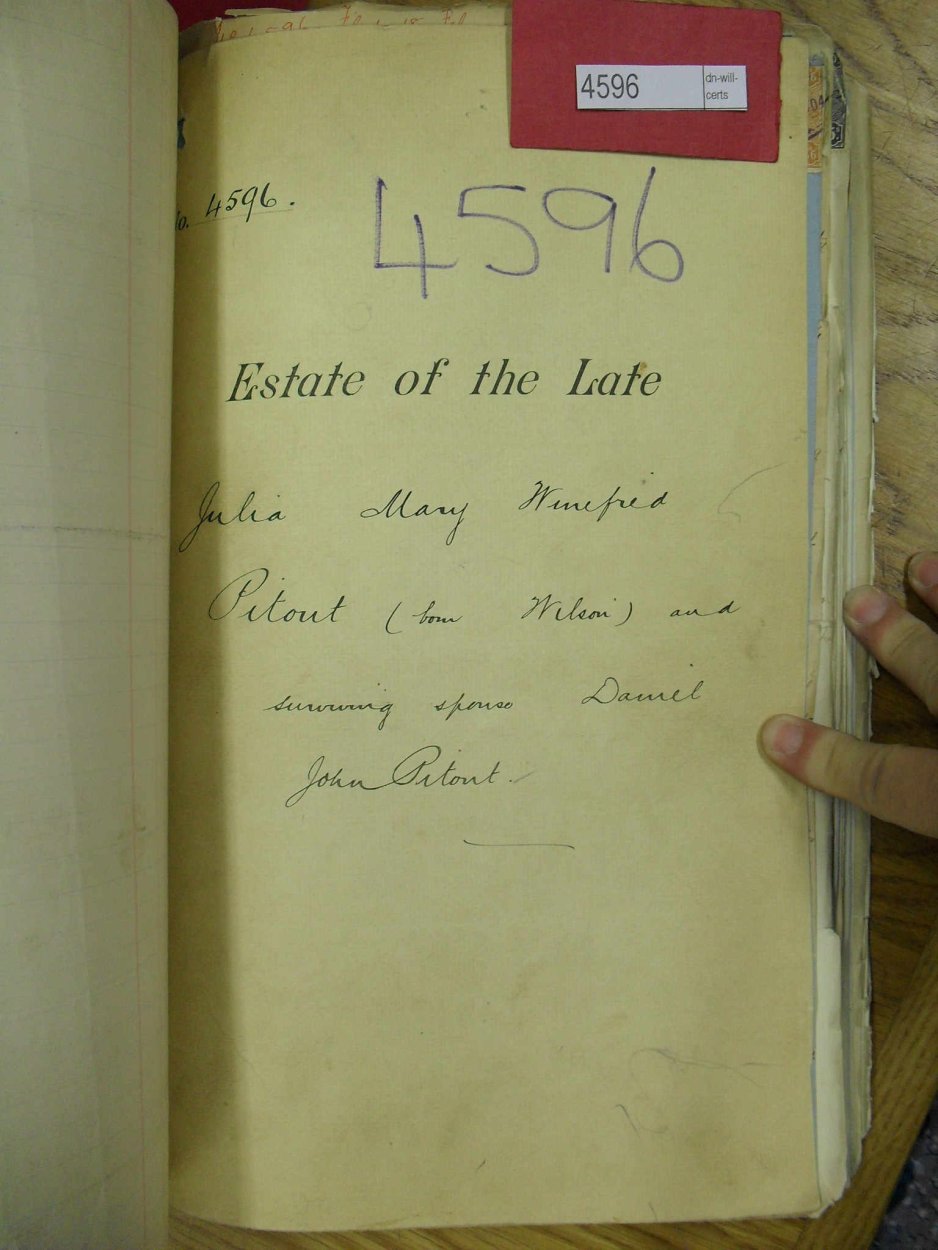 4596
dn-will-
certs
No. 4596.
4596
Estate of the Late
Julia Mary Winefred
Pitout (born Wilson) and
surviving spouse Daniel
John Pitout.